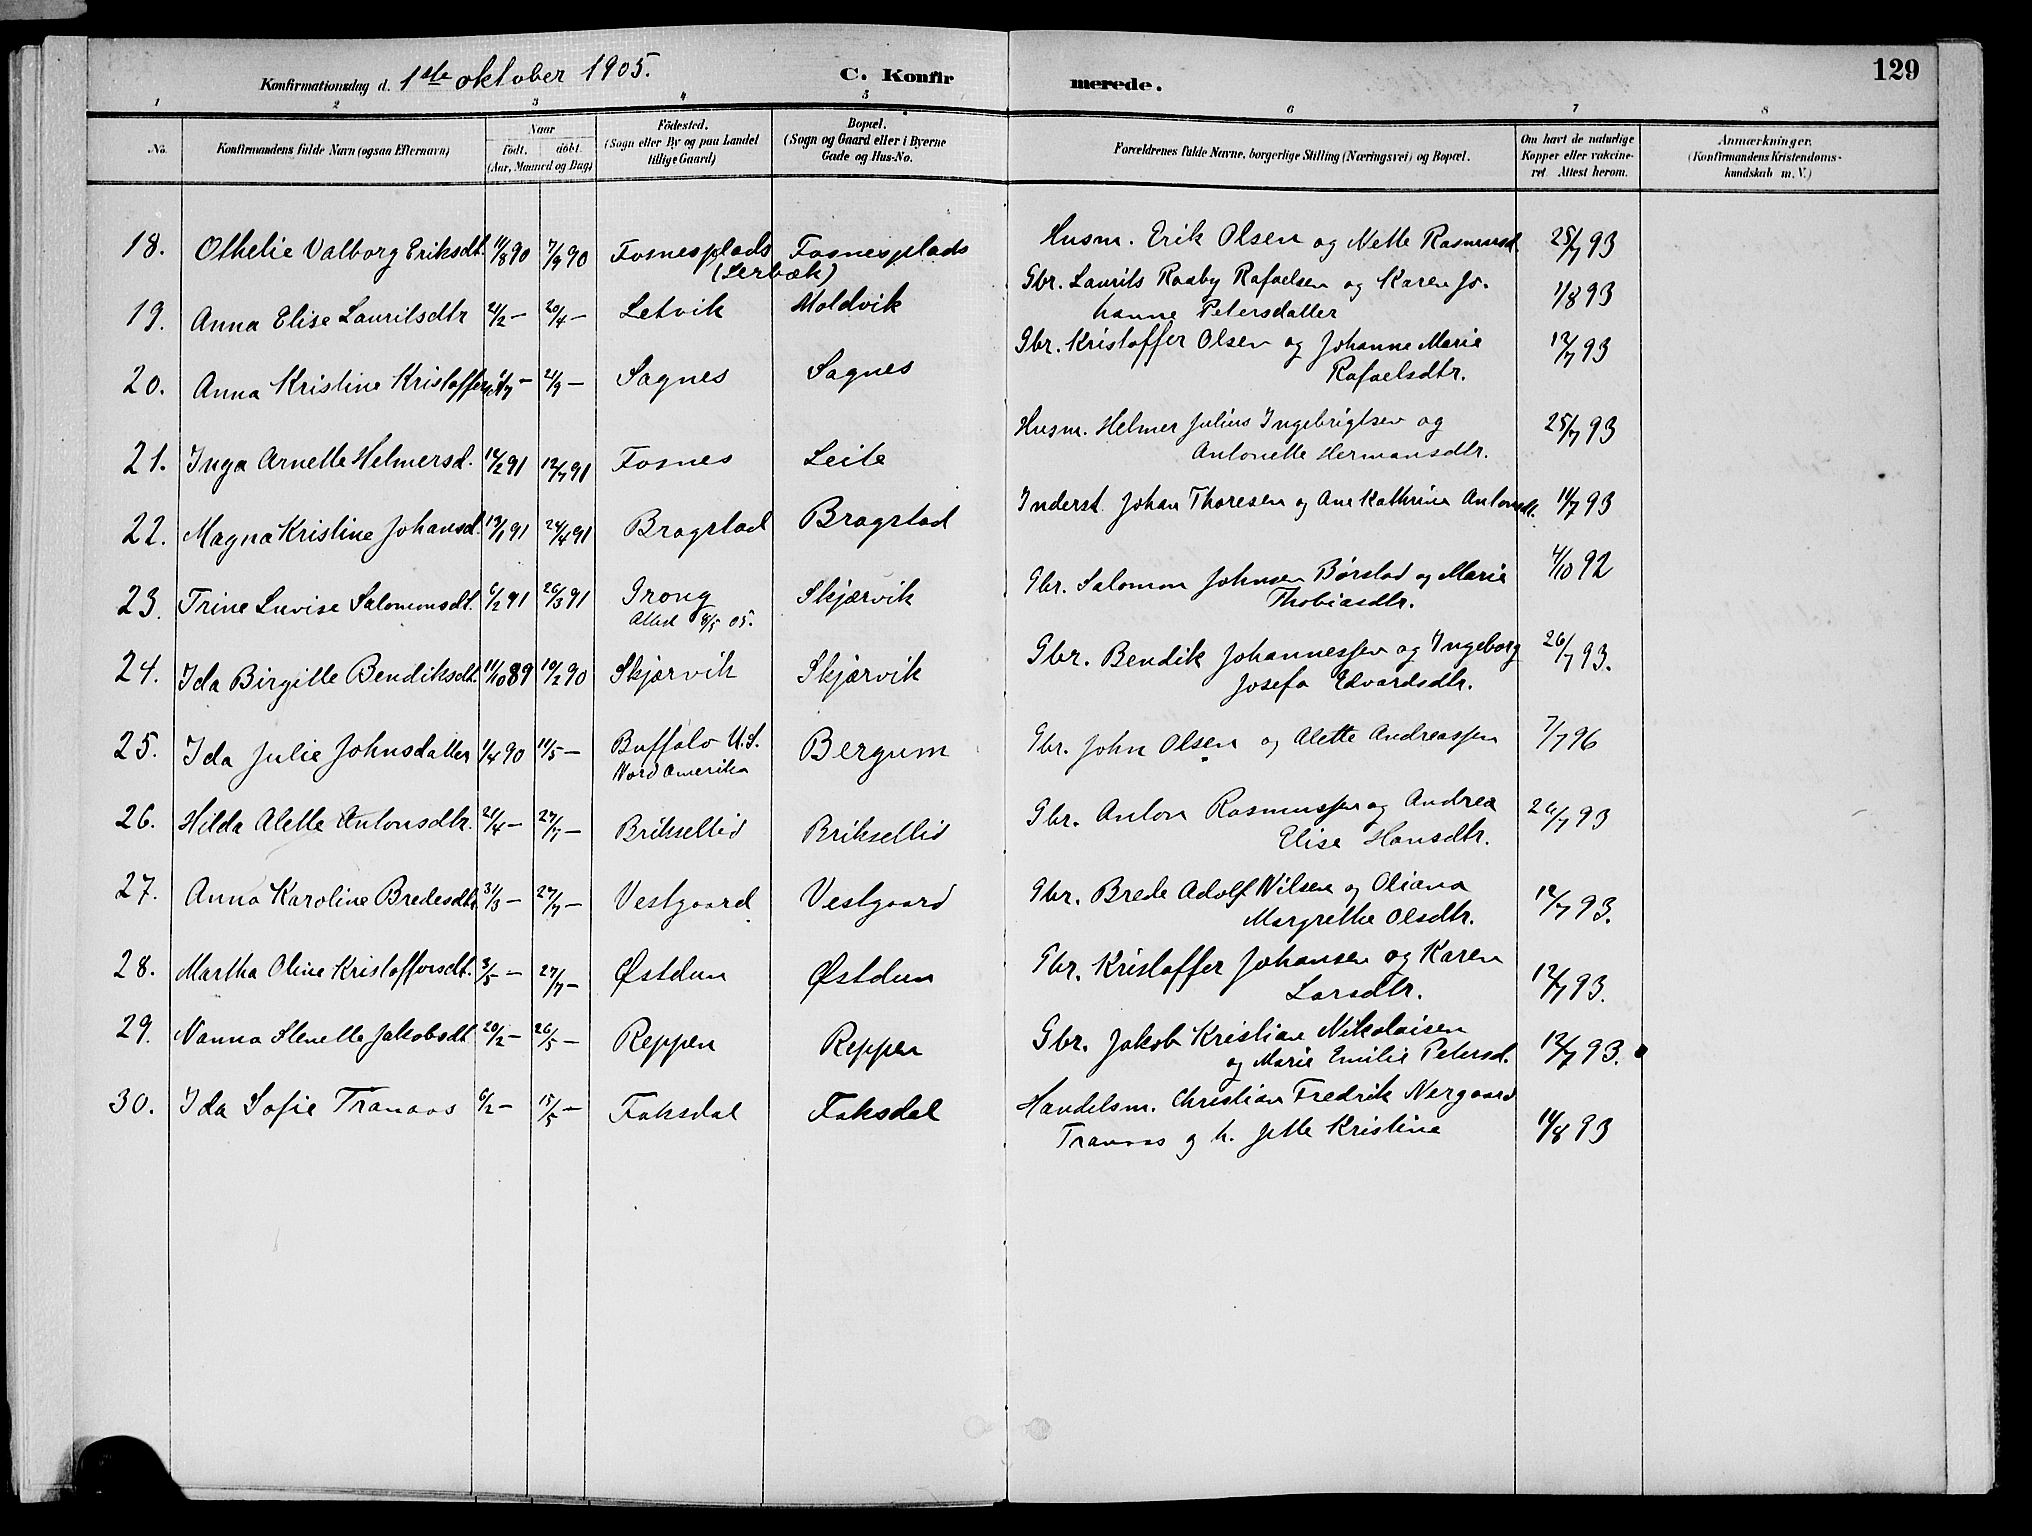 129
Konfirmationsdag d. 1ste oktober 1905. C. Konfirmerede.
1 2 3 4 5 6 7 8
No. Konfirmandens fulde Navn (ogsaa Efternavn) Naar födt. döbt. (Aar, Maaned og Dag) Födested. (Sogn eller By og paa Landet tillige Gaard) Bopæl. (Sogn og Gaard eller i Byerne Gade og Hus-No. Forældrenes fulde Navne, borgerlige Stilling (Næringsvei) og Bopæl. Om havt de naturlige Kopper eller vakcineret. Attest herom. Anmærkninger. (Konfirmandens Kristendomskundskab m. V.)
18. Othelie Valborg Eriksdt. 11/8 90 7/9 90 Fosnesplads Fosnesplads Husm. Erik Olsen og Nette Rasmusd. 25/7 93
(Lerbæk)
19. Anna Elise Lauritsdtr 2/2 - 20/4 - Letvik Moldvik Gbr. Laurits Raaby Rafaelsen og Karen Jo-
hanne Petersdatter 1/8 93
20. Anna Kristine 21/9 - Sagnes Sagnes Gbr. Kristoffer Olsen og Johanne Marie
Rafaelsdtr. 12/7 93
21. Inga Arnette Helmersd. 12/7 91 Fosnes Leite Husm. Helmer Julius Ingebrigtsen og
Antonette Hermansdtr. 25/7 93
22. Magna Kristine Johansd. 24/4 91 Bragstad Bragstad Inderst. Johan Thoresen og Ane Kathrine 14/7 93
23. Trine Luvise Salomonsdt. 6/2 91 26/3 91 Grong Skjærvik Gbr. Salomon Johnsen Børstad og Marie 4/10 92
8/5 05. Thobiasdtr.
24. Ida Birgitte Bendiksdt. 11/10 89 10/2 90 Skjærvik Skjærvik Gbr. Bendik Johannessen og Ingeborg 26/7 93.
Josefa Edvardsdtr.
25. Ida Julie Johnsdatter 1/4 90 11/5 - Buffalo U.S. Bergum Gbr. John Olsen og Alette Andreassen 7/7 96
Nord Amerika
26. Hilda Alette Antonsdtr. 21/4 - 27/7 - Briksellid Briksellid Gbr. Anton Rasmussen og Andrea 26/7 93
Elise Hansdtr.
27. Anna Karoline Bredesdtr 31/3 - 27/7 - Vestgaard Vestgaard Gbr. Brede Adolf Nilsen og Oliana
Margrethe Olsdtr. 12/7 93.
28. Martha Oline Kristoffersdt. 3/5 - 27/7 - Østdun Østdun Gbr. Kristoffer Johansen og Karen
Larsdtr. 12/7 93.
29. Nanna Stenette Jakobsdt 20/2 - 26/5 - Reppen Reppen Gbr. Jakob Kristian Nikolaisen
og Marie Emilie Petersd. 12/7 93.
30. Ida Sofie Tranaas 6/2 - 15/5 - Faksdal Faksdal Handelsm. Christian Fredrik Nergaard
Tranaas og h. Jette Kristine 14/8 93